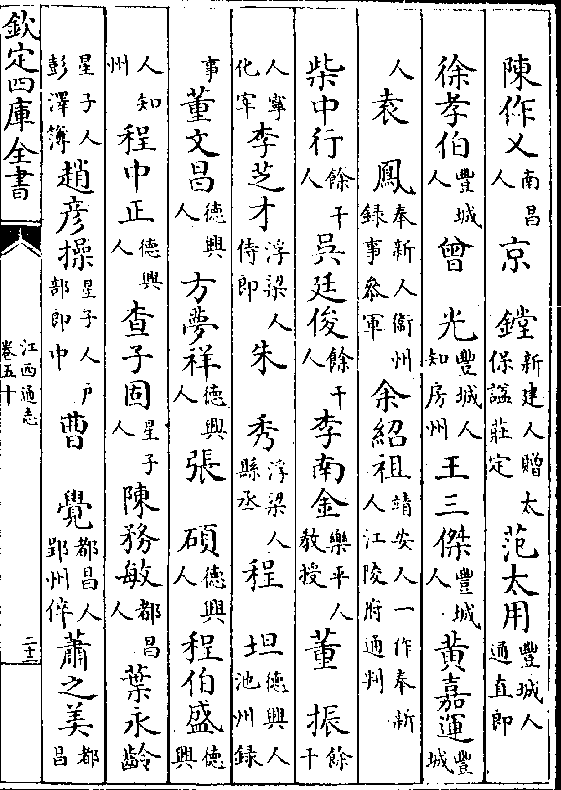 陳作乂南昌人京鏜新建人贈太保諡莊定范太用豐城人通直郎
徐孝伯豐城人曾光豐城人知房州王三傑豐城人黃嘉運豐城
人袁鳳奉新人衢州錄事參軍余紹祖靖安人一作奉新人江陵府通判
柴中行餘干人吳廷俊餘干人李南金樂平人教授董振餘干
人寧化宰李芝才浮梁人侍郎朱秀浮梁人縣丞程坦德興人池州錄
事董文昌德興人方夢祥德興人張碩德興人程伯盛德興
人知州程中正德興人查子固星子人陳務敏都昌人葉永齡
星子人彭澤簿趙彥操星子人戶部郎中曹覺都昌人鄂州倅蕭之美都昌
欽定四庫全書
江西通志
卷五十
二十二